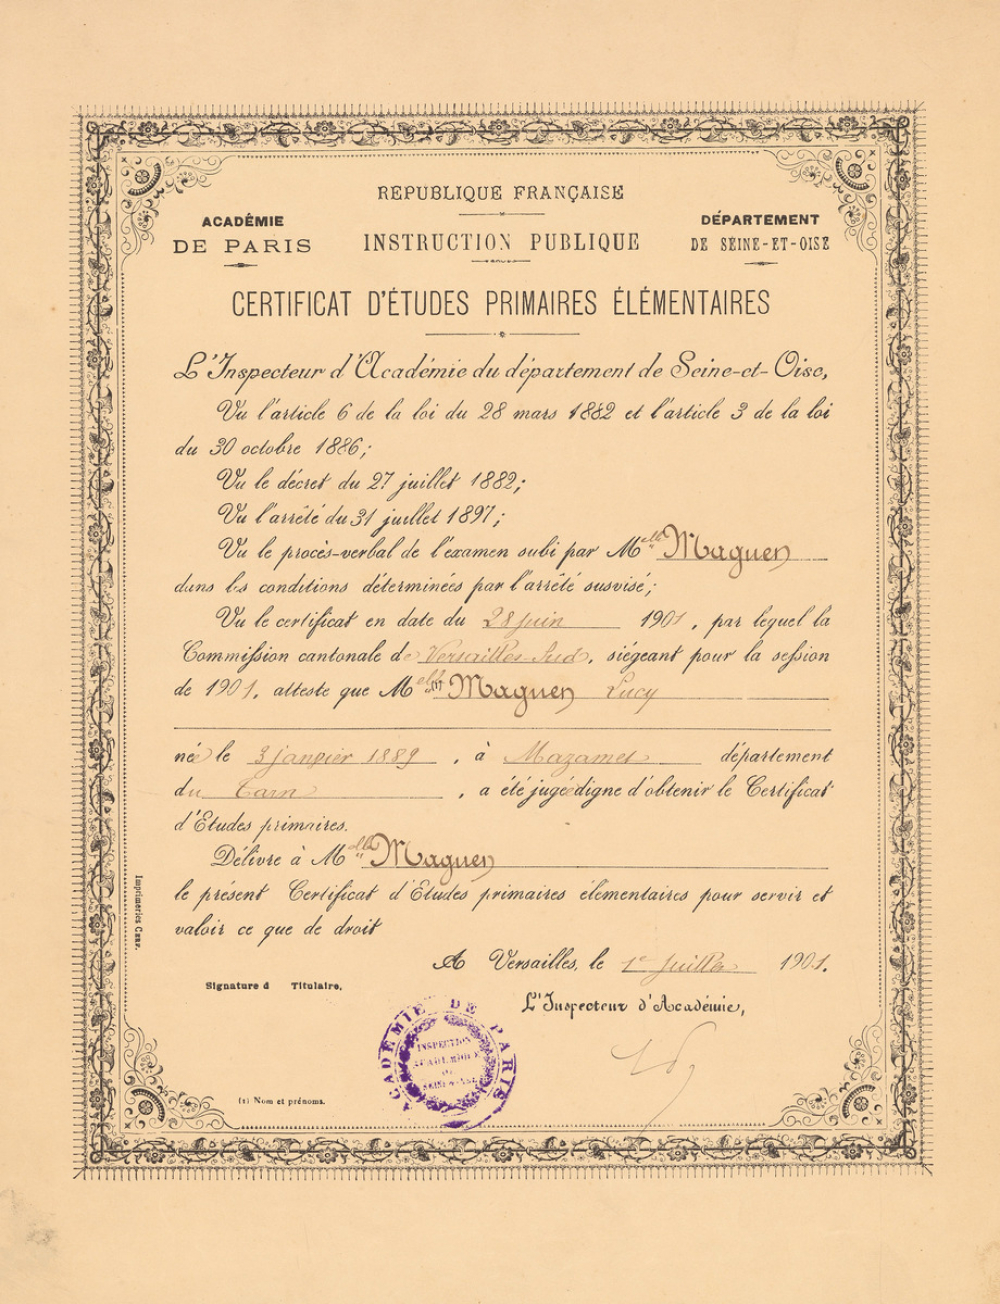 REPUBLIQUE FRANÇAISE
ACADÊMIE
DE PARIS
INSTRUCTION PUBLIQUE
DÉPARTEMENT
DE SEINE-ET-OISE
CERTIFICAT D'ÉTUDES PRIMAIRES ÉLÉMENTAIRES
L'Inspecteur d'Académie du département de Seine-et-Oise,
Vu l'article 6 de la loi du 28 mars 1882 et l'article 3 de la loi
du 30 octobre 1886;
Vu le décret du 27 juillet 1882;
Vu l'arrêté du 31 juillet 1897;
Vu le procès-verbal de l'examen subi par M elle Maguen
dans les conditions déterminées par l'arrêté susvisé;
Vu le certificat en date du 28 juin 1901, par lequel la
Commission cantonale de Versailles-Sud, siégeant pour la session
de 1901, atteste que M elle (1) Maguen Lucy
née le 3 janvier 1889, à Mazamet département
du Tarn, a été jugée digne d'obtenir le Certificat
d'Etudes primaires.
Délivré à M elle Maguen
le présent Certificat d'Etudes primaires élémentaires pour servir et
valoir ce que de droit
A Versailles, le 1er Juillet 1901.
Signature d Titulaire,
L'Inspecteur d'Académie,
ACADÉMIE DE PARIS
INSPECTION
ACADÉMIQUE
DE
SEINE-&-OISE
(1) Nom et prénoms.
Imprimeries CERF.